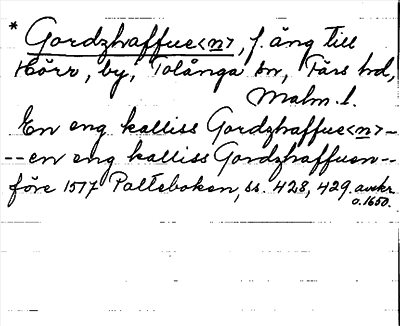 * Gordzhaffue<n>, f. äng till
Hörr, by, Tolånga sn, Färs hd,
Malm. l.
En eng kalliss Gordzhaffue<n>-
--en eng kalliss Gordzhaffuen--
före 1517 Palteboken, ss. 428, 429. avskr.
o. 1650.